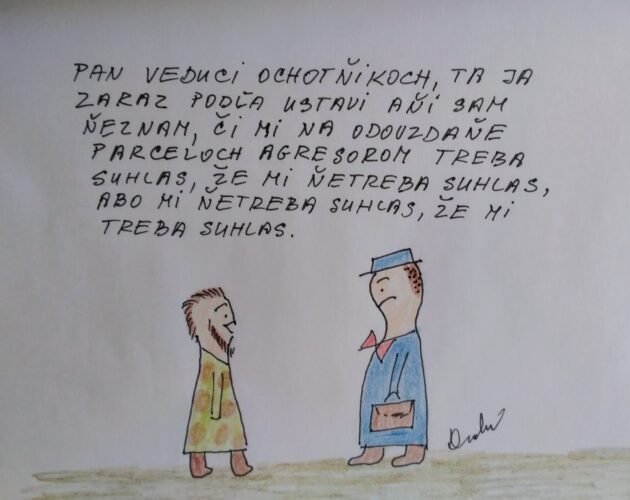 PAN VEDUCI OCHOTŇIKOCH, TA JA
ZARAZ PODĽA USTAVI AŇI SAM
ŇEZNAM, ČI MI NA ODOUZDAŇE
PARCELOCH AGRESOROM TREBA
SUHLAS, ŽE MI ŇETREBA SUHLAS,
ABO MI ŇETREBA SUHLAS, ŽE MI
TREBA SUHLAS.